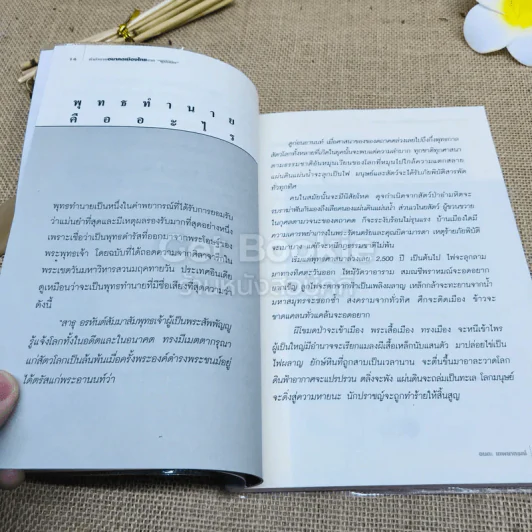 พุทธทำนาย
คืออะไร
พุทธทำนายเป็นหนึ่งในคำพยากรณ์ที่ได้รับการยอมรับ
ว่าแม่นยำที่สุดและมีเหตุผลรองรับมากที่สุดอย่างหนึ่ง
เพราะเชื่อว่าเป็นพุทธดำรัสที่ออกมาจากพระโอษฐ์ของ
พระพุทธเจ้า โดยฉบับที่ได้ถอดความจากศิลาจารึกใน
พระเชตวันมหาวิหารสวนมฤคทายวัน ประเทศอินเดีย
ดูเหมือนว่าจะเป็นพุทธทำนายที่มีชื่อเสียงที่สุดดังความ
ดังนี้
"สาธุ อรหันต์สัมมาสัมพุทธเจ้าผู้เป็นพระสัพพัญญู
รู้แจ้งโลกทั้งในอดีตและในอนาคต ทรงมีเมตตากรุณา
แก่สัตว์โลกเป็นล้นพ้นเมื่อครั้งพระองค์ดำรงพระชนม์อยู่
ได้ตรัสแก่พระอานนท์ว่า
ดูก่อนอานนท์ เมื่อศาสนาของตถาคตล่วงเลยไปถึงกึ่งพุทธกาล
สัตว์โลกทั้งหลายที่เกิดในยุคนั้นจะพบแต่ความลำบาก ทุกชาติทุกศาสนา
ตามธรรมชาติอันหมุนเวียนของโลกที่หมุนไปใกล้ความแตกสลาย
แผ่นดินแผ่นน้ำจะลุกเป็นไฟ มนุษย์และสัตว์จะได้รับภัยพิบัติสารพัด
ทั่วทุกทิศ
คนในสมัยนั้นจะมีนิสัยโหด ดุจกำเนิดจากสัตว์ป่าอำมหิตจะ
รบราฆ่าฟันกันเองถึงเลือดนองแผ่นดินแผ่นน้ำ ส่วนเวไนยสัตว์ ผู้ขวนขวาย
ในกุศลตามวจนะของตถาคต ก็จะระงับร้อนไม่รุนแรง บ้านเมืองใดมี
ความเคารพยำเกรงในพระรัตนตรัยและคุณบิดามารดา เหตุร้ายภัยพิบัติ
จะเบาบาง แต่ก็จะหนีกฎธรรมชาติไม่พ้น
เริ่มแต่พุทธศาสนาล่วงเลย 2,500 ปี เป็นต้นไป ไฟจะลุกลาม
มาทางทิศตะวันออก ไหม้วัดวาอาราม สมณชีพราหมณ์จะอดอยาก
น้ำมหาสมุทรจะชอกช้ำ สงครามจากทั่วทิศ ศึกจะติดเมือง ข้าวจะ
ขาดแคลนทั่วแผ่นดินจะอดอยาก
ผีโขมดป่าจะเข้าเมือง พระเสื้อเมือง ทรงเมือง จะหนีเข้าไพร
ผู้เป็นใหญ่มีอำนาจจะเรียกแมลงผีเสื้อเหล็กนับแสนตัว มาปล่อยไข่เป็น
ไฟผลาญ ยักษ์หินที่ถูกสาปเป็นเวลานาน จะตื่นขึ้นมาอาละวาดโลก
ดินฟ้าอากาศจะแปรปรวน ตลิ่งจะพัง แผ่นดินจะถล่มเป็นทะเล โลกมนุษย์
จะดิ่งสู่ความหายนะ นักปราชญ์จะถูกทำร้ายให้สิ้นสูญ